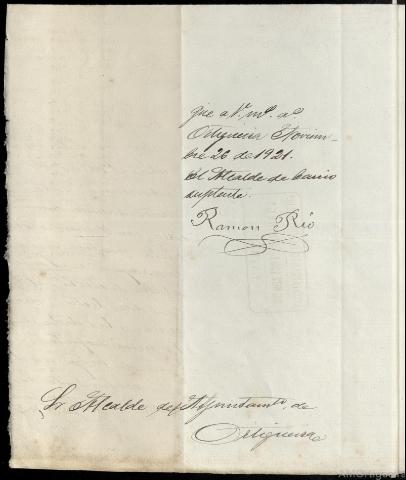 que a V. m.s a.s
Ortigueira Noviem-
bre 26 de 1921.
El Alcalde de barrio
suplente.
Ramon Rio
Sr Alcalde del Ayuntamto. de
Ortigueira